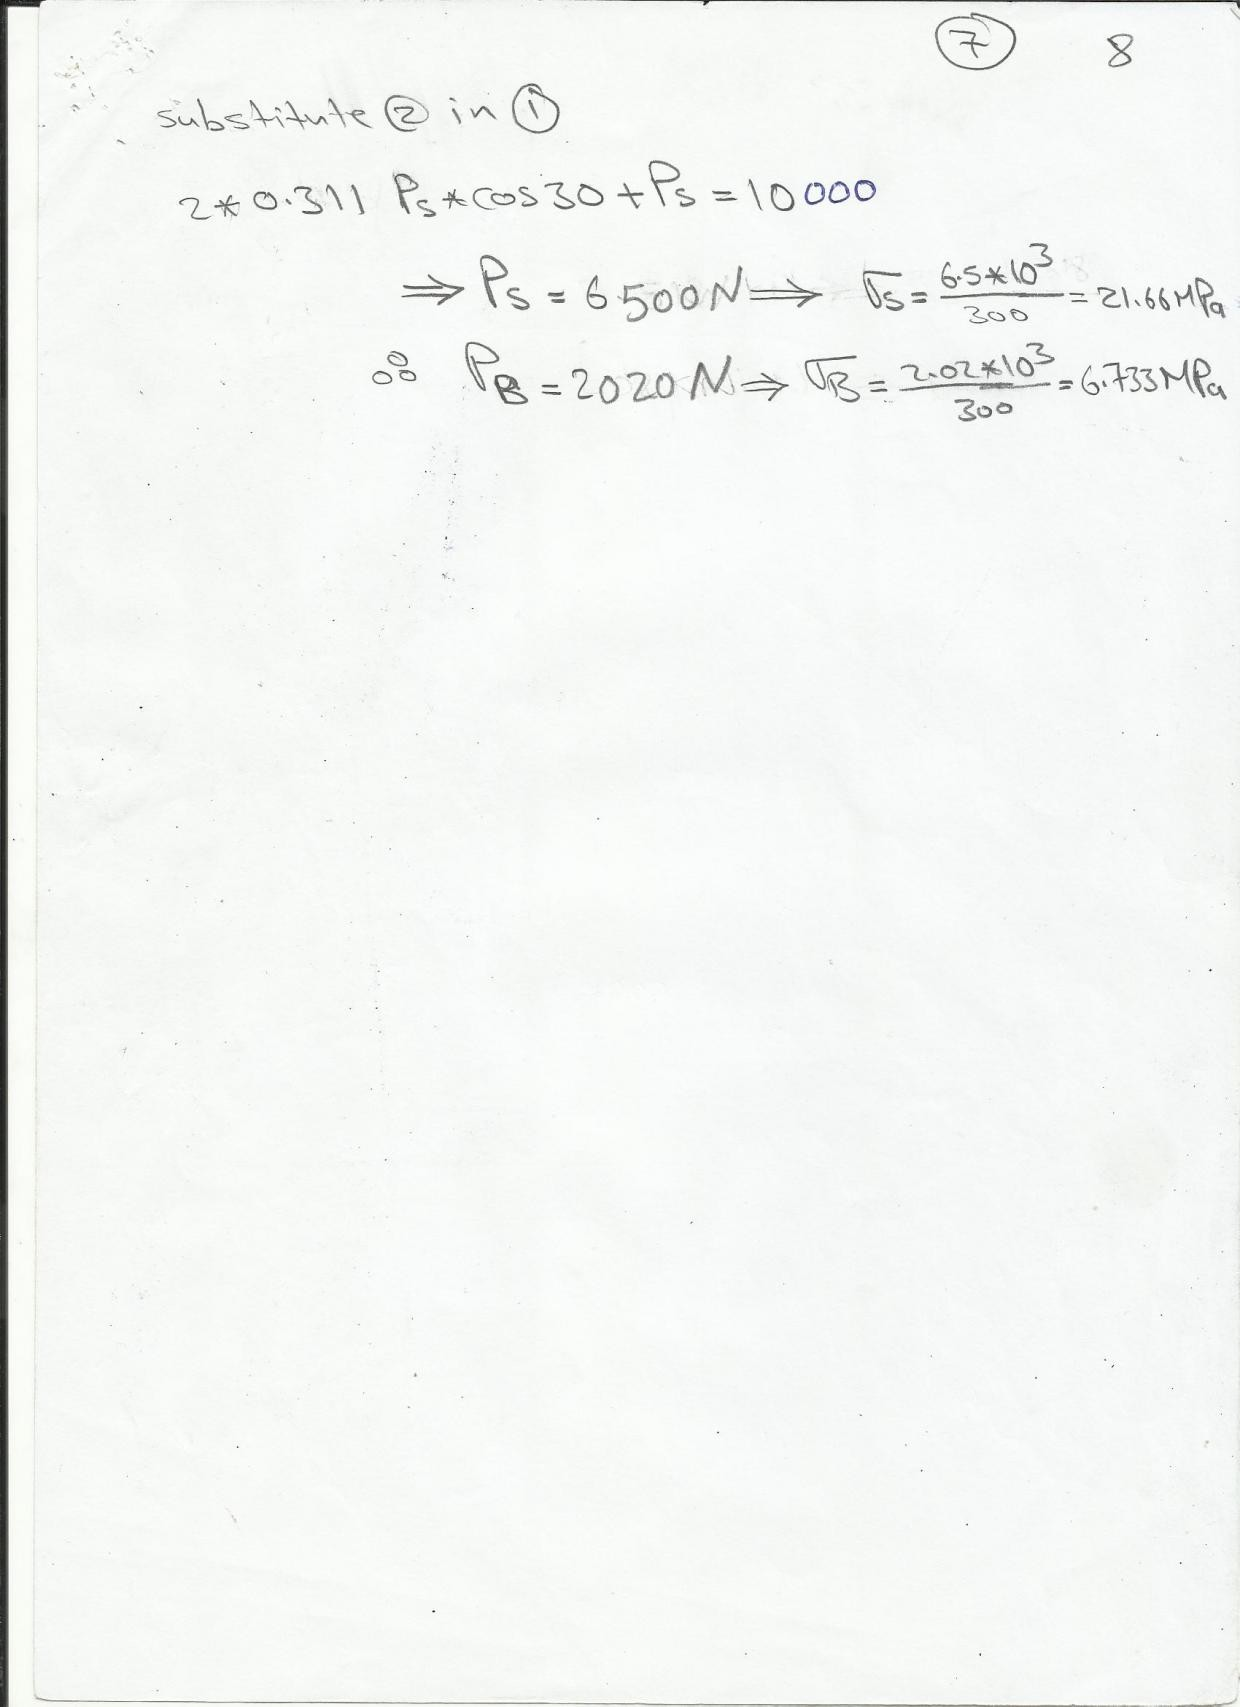 7 8
substitute ② in ①
2*0.311 Ps*cos30+Ps=10000
⇒ Ps = 6500N ⟹ σs = 6.5*10³/300 = 21.66MPa
∴ PB = 2020N ⇒ σB = 2.02*10³/300 = 6.733MPa